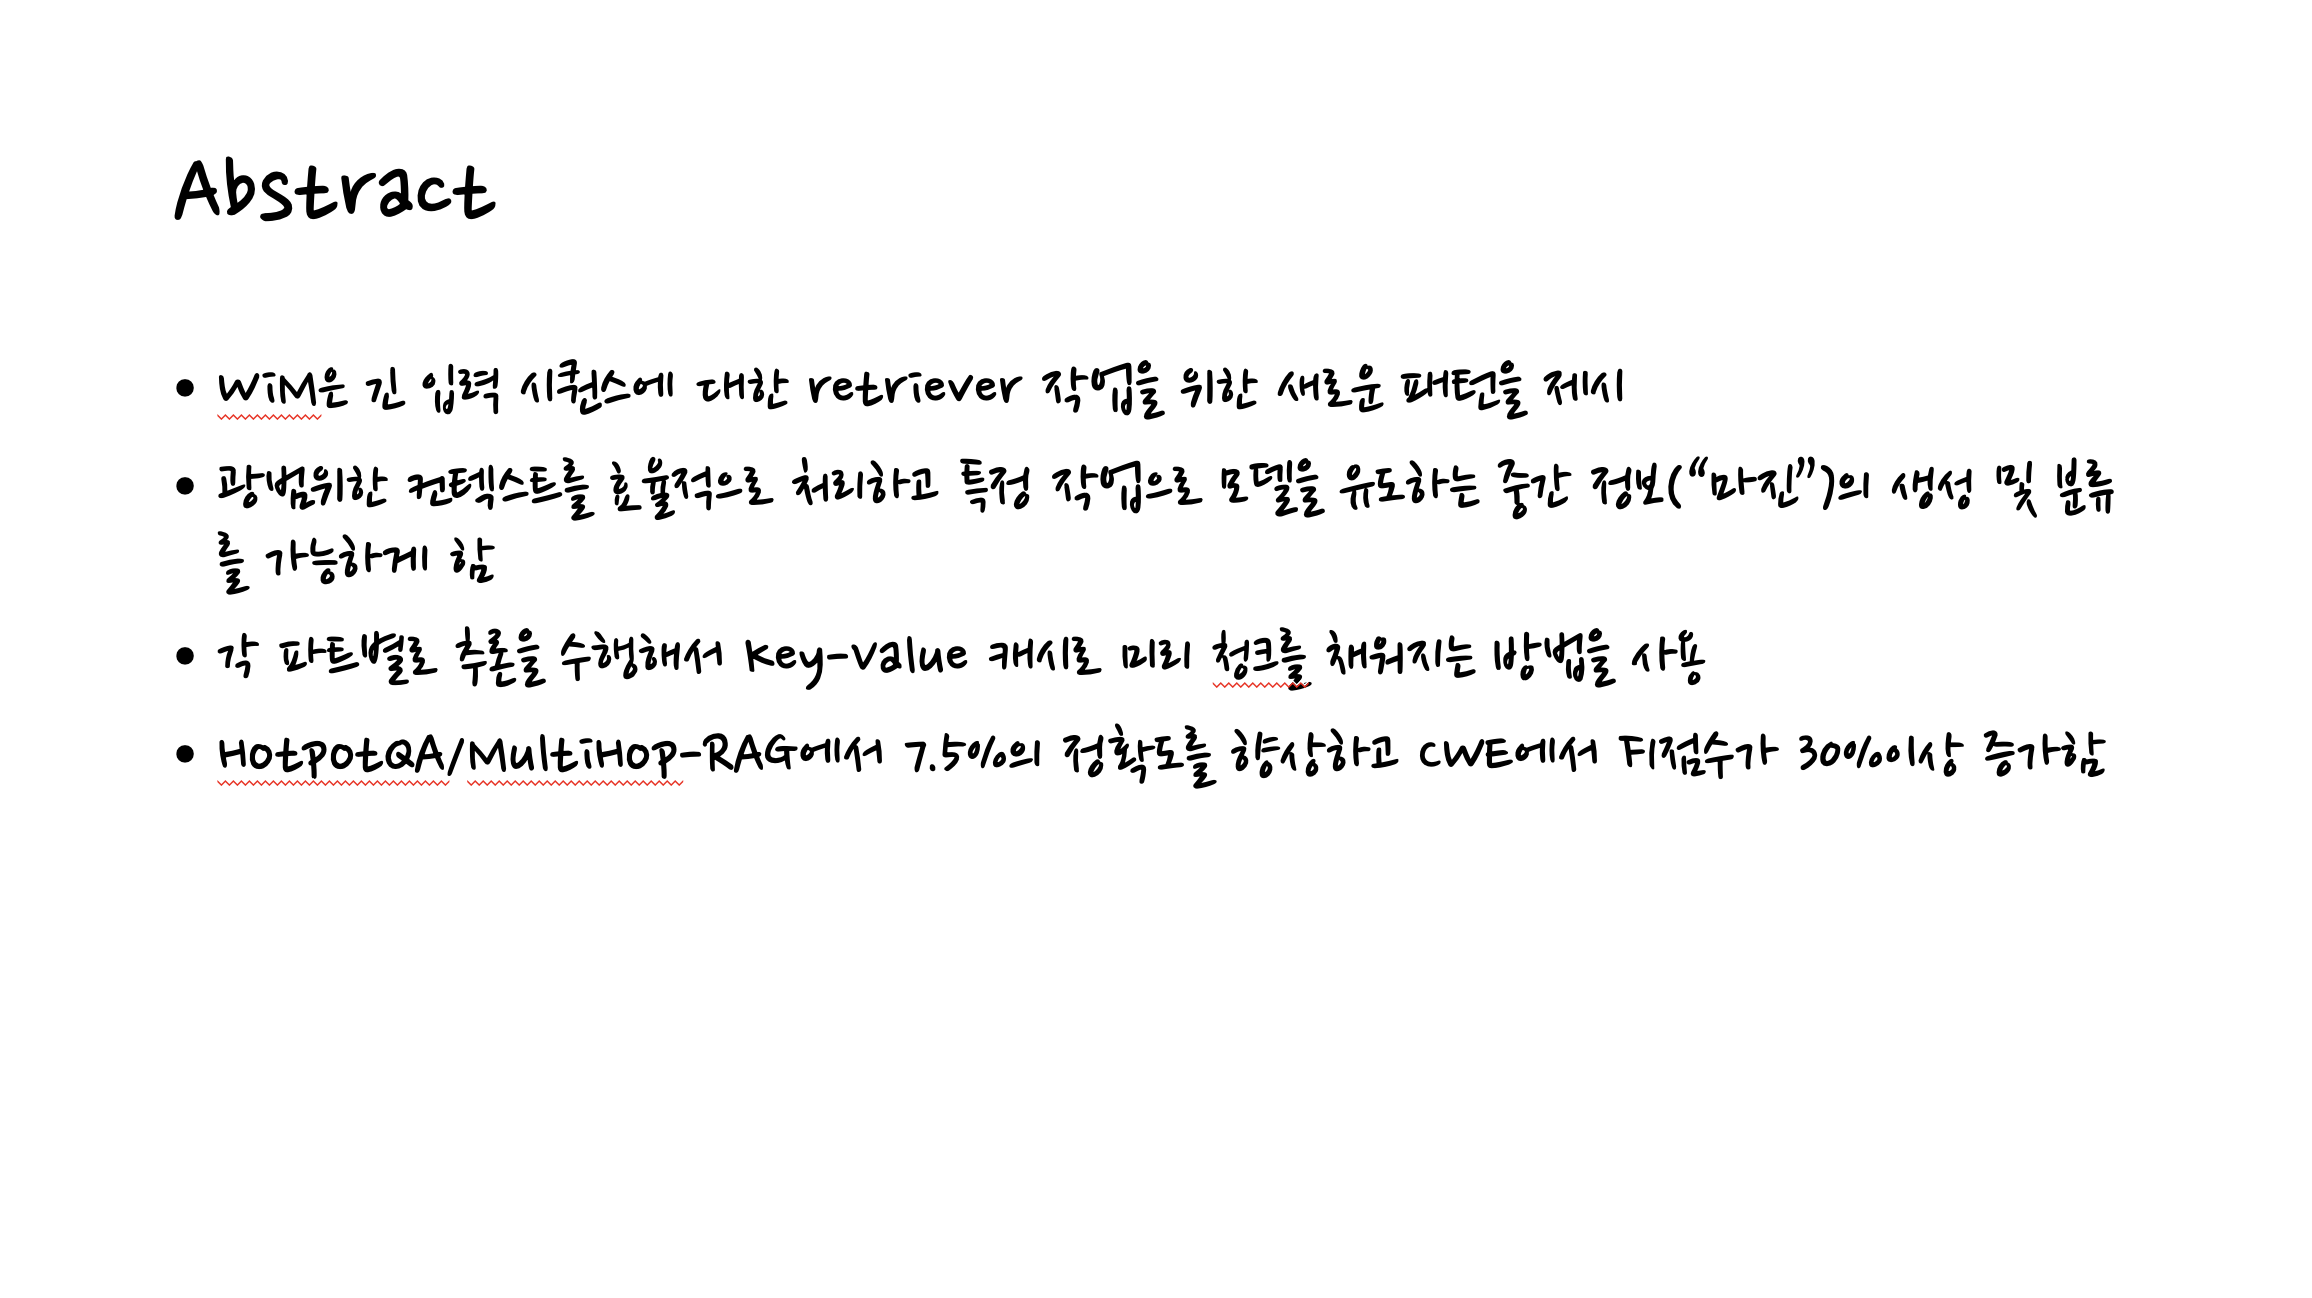 Abstract
• WiM은 긴 입력 시퀀스에 대한 retriever 작업을 위한 새로운 패턴을 제시
• 광범위한 컨텍스트를 효율적으로 처리하고 특정 작업으로 모델을 유도하는 중간 정보(“마진”)의 생성 및 분류
를 가능하게 함
• 각 파트별로 추론을 수행해서 key-value 캐시로 미리 청크를 채워지는 방법을 사용
• HotpotQA/MultiHop-RAG에서 7.5%의 정확도를 향상하고 CWE에서 F1점수가 30%이상 증가함